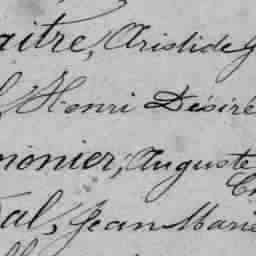 aitre, Aristide
Henri Désiré
monier, Auguste
al, Jean Marie